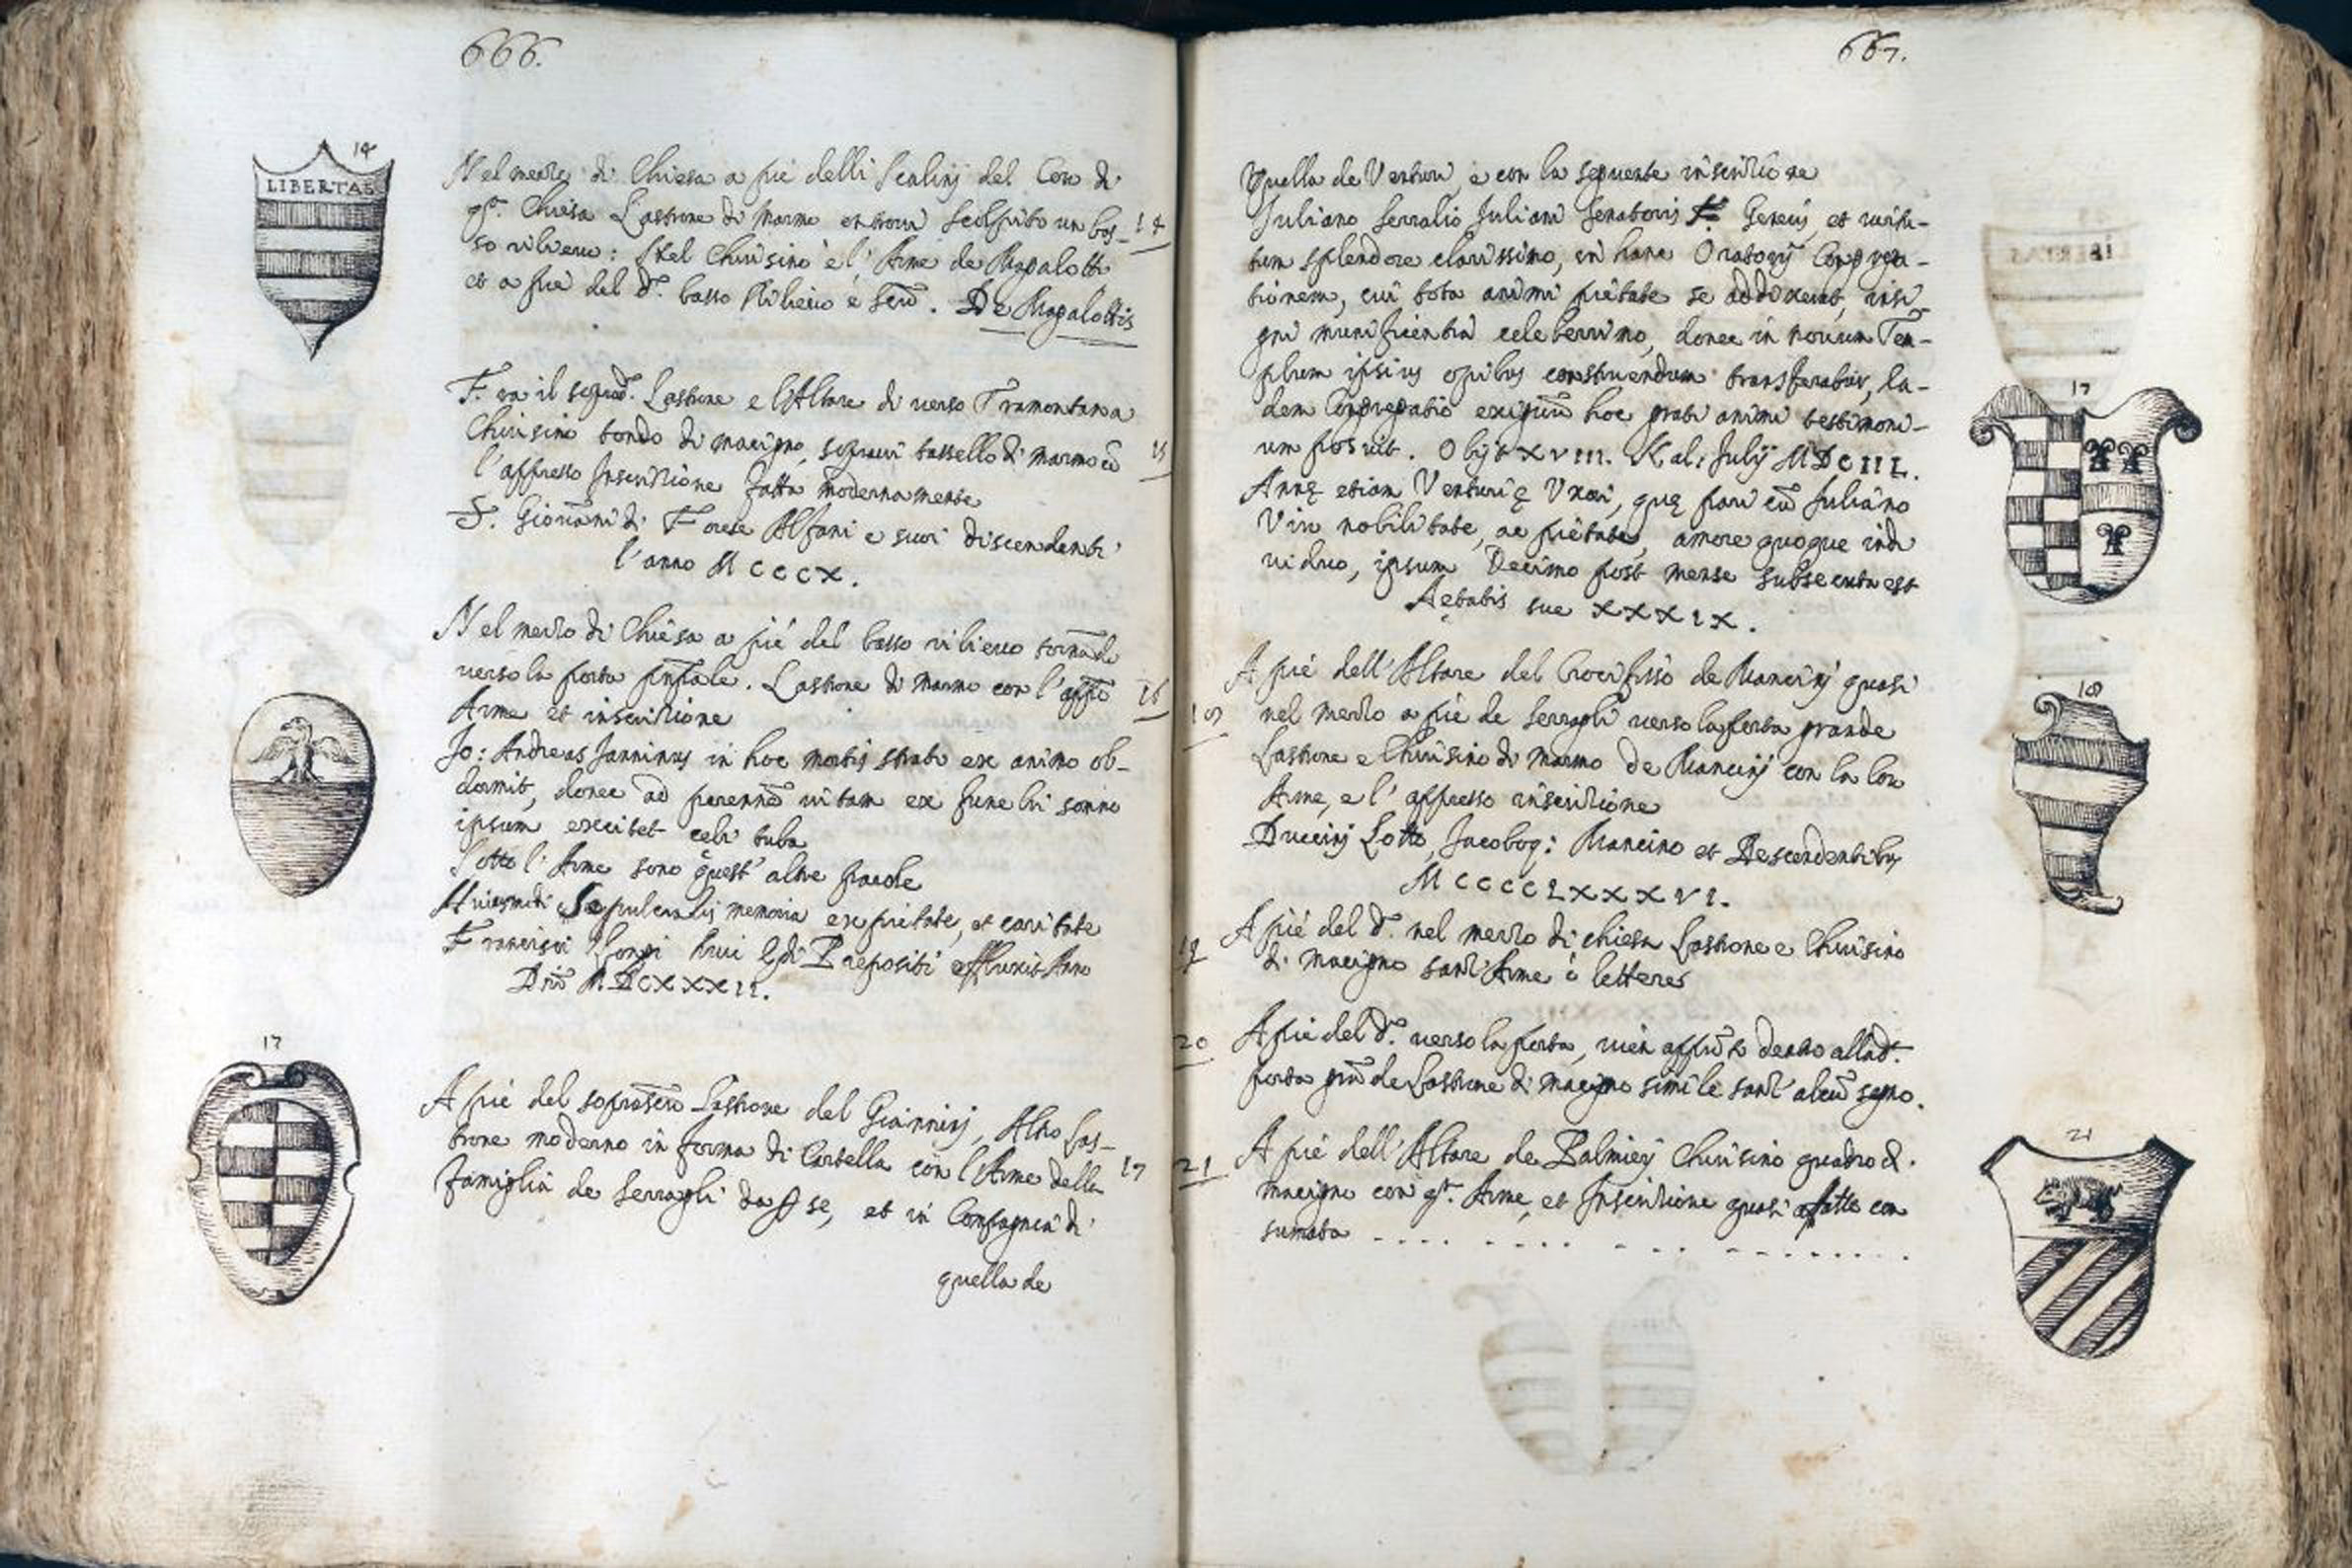 666.
14
LIBERTAS
Nel mezzo di Chiesa a piè delli Scalinj del Coro di
qst. Chiesa Lastrone di Marmo entrovi Scolpito un bas-
14
so rilievo: nel Chiusino è l'Arme de Magalotti
et a piè del d.o basso Rilievo è . De Magalottis
Fra il Lastrone e l'Altare di verso Tramontana
Chiusino tondo di macigno, sopravi tassello di marmo cō
15
l'appresso Inscritione fatta modernamente
S. Giovanni di Forese Alfani e suoi discendenti
l'anno MCCCX.
Nel mezzo di Chiesa a piè del basso rilievo
verso la porta . Lastrone di marmo con l'
16
Arme et inscritione
Jo: Andreas Janninus in hoc mortis strato ex animo ob-
dormit, donec ad perennē vitam ex funebri somno
ipsum excitet celi tuba
Sotto l'Arme sono quest'altre parole
Huiusmodi Sepulcralis memoria ex pietate, et caritate
Francisci huic Prepositi effluxit Anno
Dnī MDCXXXII.
17
A piè del Lastrone del Gianninj, Altro las-
trone moderno in forma di Cartella con l'Arme della
17
famiglia de Serragli da per se, et in Compagnia di
quella de
667.
Quella de Venturi, è con la seguente inscritione
Juliano Serralio Juliani Senatoris F. Generis, et virtu-
tum splendore clarissimo, in hanc Oratorij Congrega-
tionem, cui tota animi pietate se addixerat, insi-
gni munificentia celeberrimo, donec in novum Tem-
plum ipsius opibus construendum transferatur, Ea-
dem Congregatio exiguū hoc grati animi testimoni-
17
um posuit. Obijt XVIII. Kal: Julij MDCIIL.
Annę etiam Venturię Uxori, quę pari cū Juliano
Viro nobilitate, ac pietate, amore quoque indi
viduo, ipsum Decimo post mense subsecuta est
Aętatis sue XXXIX.
A piè dell'Altare del Crocifisso de Mancinj quasi
18
18
nel mezzo a piè de Serragli verso la porta grande
Lastrone e Chiusino di Marmo de Mancinj con la lor
Arme, e l'appresso inscritione
Duccinj Lotto, Jacoboq: Mancino et Descendentibus
MCCCCLXXXVI.
19
A piè del d.o nel mezzo di chiesa Lastrone e Chiusino
di macigno sanz'Arme ò lettere
20
A piè del d.o verso la porta, dentro alla d.
porta grāde Lastrone di macigno simile sanz'alcū segno.
21
21
A piè dell'Altare de Palmierj Chiusino quadro di
macigno con qst. Arme, et Inscritione quasi affatto con
sumata .... .... ... ........